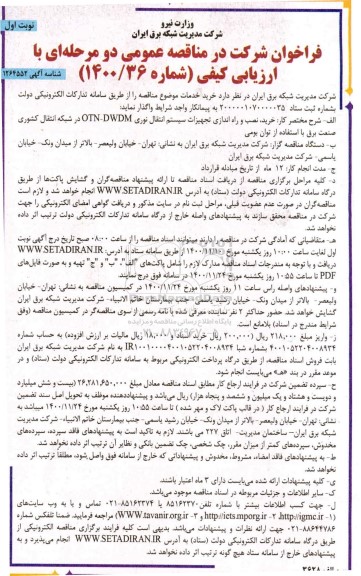 وزارت نیرو
شرکت مدیریت شبکه برق ایران
نوبت اول
فراخوان شرکت در مناقصه عمومی دو مرحله‌ای با
ارزیابی کیفی (شماره ۱۴۰۰/۳۶)
شناسه آگهی ۱۲۶۴۵۵۲
شرکت مدیریت شبکه برق ایران در نظر دارد خرید خدمات موضوع مناقصه را از طریق سامانه تدارکات الکترونیکی دولت
بشماره ثبت ستاد ۲۰۰۰۰۰۱۰۷۰۰۰۰۳۵ به پیمانکار واجد شرایط واگذار نماید:
الف- شرح مختصر کار: خرید، نصب و راه اندازی تجهیزات سیستم انتقال نوری OTN-DWDM در شبکه انتقال کشوری
صنعت برق با استفاده از توان بومی
ب- دستگاه مناقصه گزار: شرکت مدیریت شبکه برق ایران به نشانی: تهران- خیابان ولیعصر- بالاتر از میدان ونک- خیابان
یاسمی- شرکت مدیریت شبکه برق ایران
ج- مدت انجام کار: ۱۲ ماه از تاریخ مبادله قرارداد
د- کلیه مراحل برگزاری مناقصه از دریافت اسناد مناقصه تا ارائه پیشنهاد مناقصه‌گران و گشایش پاکت‌ها از طریق
درگاه سامانه تدارکات الکترونیکی دولت (ستاد) به آدرس WWW.SETADIRAN.IR انجام خواهد شد و لازم است
مناقصه‌گران در صورت عدم عضویت قبلی، مراحل ثبت نام در سایت مذکور و دریافت گواهی امضای الکترونیکی را جهت
شرکت در مناقصه محقق سازند به پیشنهادهای واصله خارج از درگاه سامانه تدارکات الکترونیکی دولت ترتیب اثر داده
نخواهد شد.
هـ- متقاضیانی که آمادگی شرکت در مناقصه را دارند میتوانند اسناد مناقصه را از ساعت ۰۸:۰۰ صبح تاریخ درج آگهی نوبت
اول لغایت ساعت ۱۰:۰۰ روز یکشنبه مورخ از طریق سامانه ستاد به آدرس: WWW.SETADIRAN.IR
دریافت و با توجه به مندرجات اسناد مناقصه مدارک لازم را شامل پاکت‌های "الف"، "ب" و "ج" تهیه و به صورت فایل‌های
PDF تا ساعت ۱۰:۵۵ روز یکشنبه مورخ ۱۴۰۰/۱۱/۲۴ در سامانه فوق درج نمایند.
و- پیشنهادهای واصله راس ساعت ۱۱ روز یکشنبه مورخ ۱۴۰۰/۱۱/۲۴ در کمیسیون مناقصه به نشانی: تهران- خیابان
ولیعصر- بالاتر از میدان ونک- خیابان رشید یاسمی- جنب بیمارستان خاتم الانبیاء- شرکت مدیریت شبکه برق ایران
گشایش خواهد شد. حضور حداکثر ۲ نفر نماینده معرفی شده با نامه رسمی از سوی مناقصه‌گر در کمیسیون مناقصه (وفق
شرایط مندرج در اسناد) بلامانع است.
ز- واریز مبلغ ۲۱۸,۰۰۰ ریال (۲۰۰,۰۰۰ ریال خرید اسناد و ۱۸,۰۰۰ ریال مالیات بر ارزش افزوده) به حساب شماره
به نام شرکت مدیریت شبکه برق ایران
بابت فروش اسناد مناقصه، از طریق درگاه پرداخت الکترونیکی مربوط به سامانه تدارکات الکترونیکی دولت (ستاد) و در
موعد مقرر در بند «هـ» می‌بایست انجام شود.
ح- سپرده تضمین شرکت در فرایند ارجاع کار مطابق اسناد مناقصه معادل مبلغ ۲۶,۲۸۱,۶۵۰,۰۰۰ (بیست و شش میلیارد
و دویست و هشتاد و یک میلیون و ششصد و پنجاه هزار) ریال می‌باشد و پیشنهاددهنده موظف به تحویل اصل سند تضمین
شرکت در فرایند ارجاع کار ( در قالب پاکت لاک و مهر شده ) تا ساعت ۱۰:۵۵ روز یکشنبه مورخ ۱۴۰۰/۱۱/۲۴ میباشد به
نشانی: تهران- خیابان ولیعصر- بالاتر از میدان ونک- خیابان رشید یاسمی- جنب بیمارستان خاتم الانبیاء- شرکت مدیریت
شبکه برق ایران- ساختمان مدیریت- اتاق ۲۲۷ می باشند. لازم به تاکید است به پیشنهادهای فاقد سپرده، سپرده‌های
مخدوش، سپرده‌های کمتر از میزان مقرر، چک شخصی، چک تضمین بانکی و نظایر آن ترتیب اثر داده نخواهد شد.
ط- به پیشنهادهای فاقد امضاء، مشروط، مخدوش و پیشنهاداتی که خارج از سامانه فوق واصل شود، مطلقاً ترتیب اثر داده
نخواهد شد.
ی- کلیه پیشنهادات ارائه شده می‌بایست دارای ۳ ماه اعتبار باشند.
ک- سایر اطلاعات و جزئیات مربوطه در اسناد مناقصه موجود می‌باشد.
ل- جهت کسب اطلاعات بیشتر با شماره تلفن تماس و یا به وب سایت‌های
مراجعه فرمایید. ضمنا تلفکس شماره
جهت ارائه نظرات و پیشنهادات می‌باشد. بدیهی است کلیه فرایند برگزاری مناقصه الکترونیکی از
طریق درگاه سامانه تدارکات الکترونیکی دولت (ستاد) به آدرس WWW.SETADIRAN.IR انجام می‌پذیرد و به
پیشنهادهای خارج از سامانه ستاد هیچ گونه ترتیب اثر داده نخواهد شد.